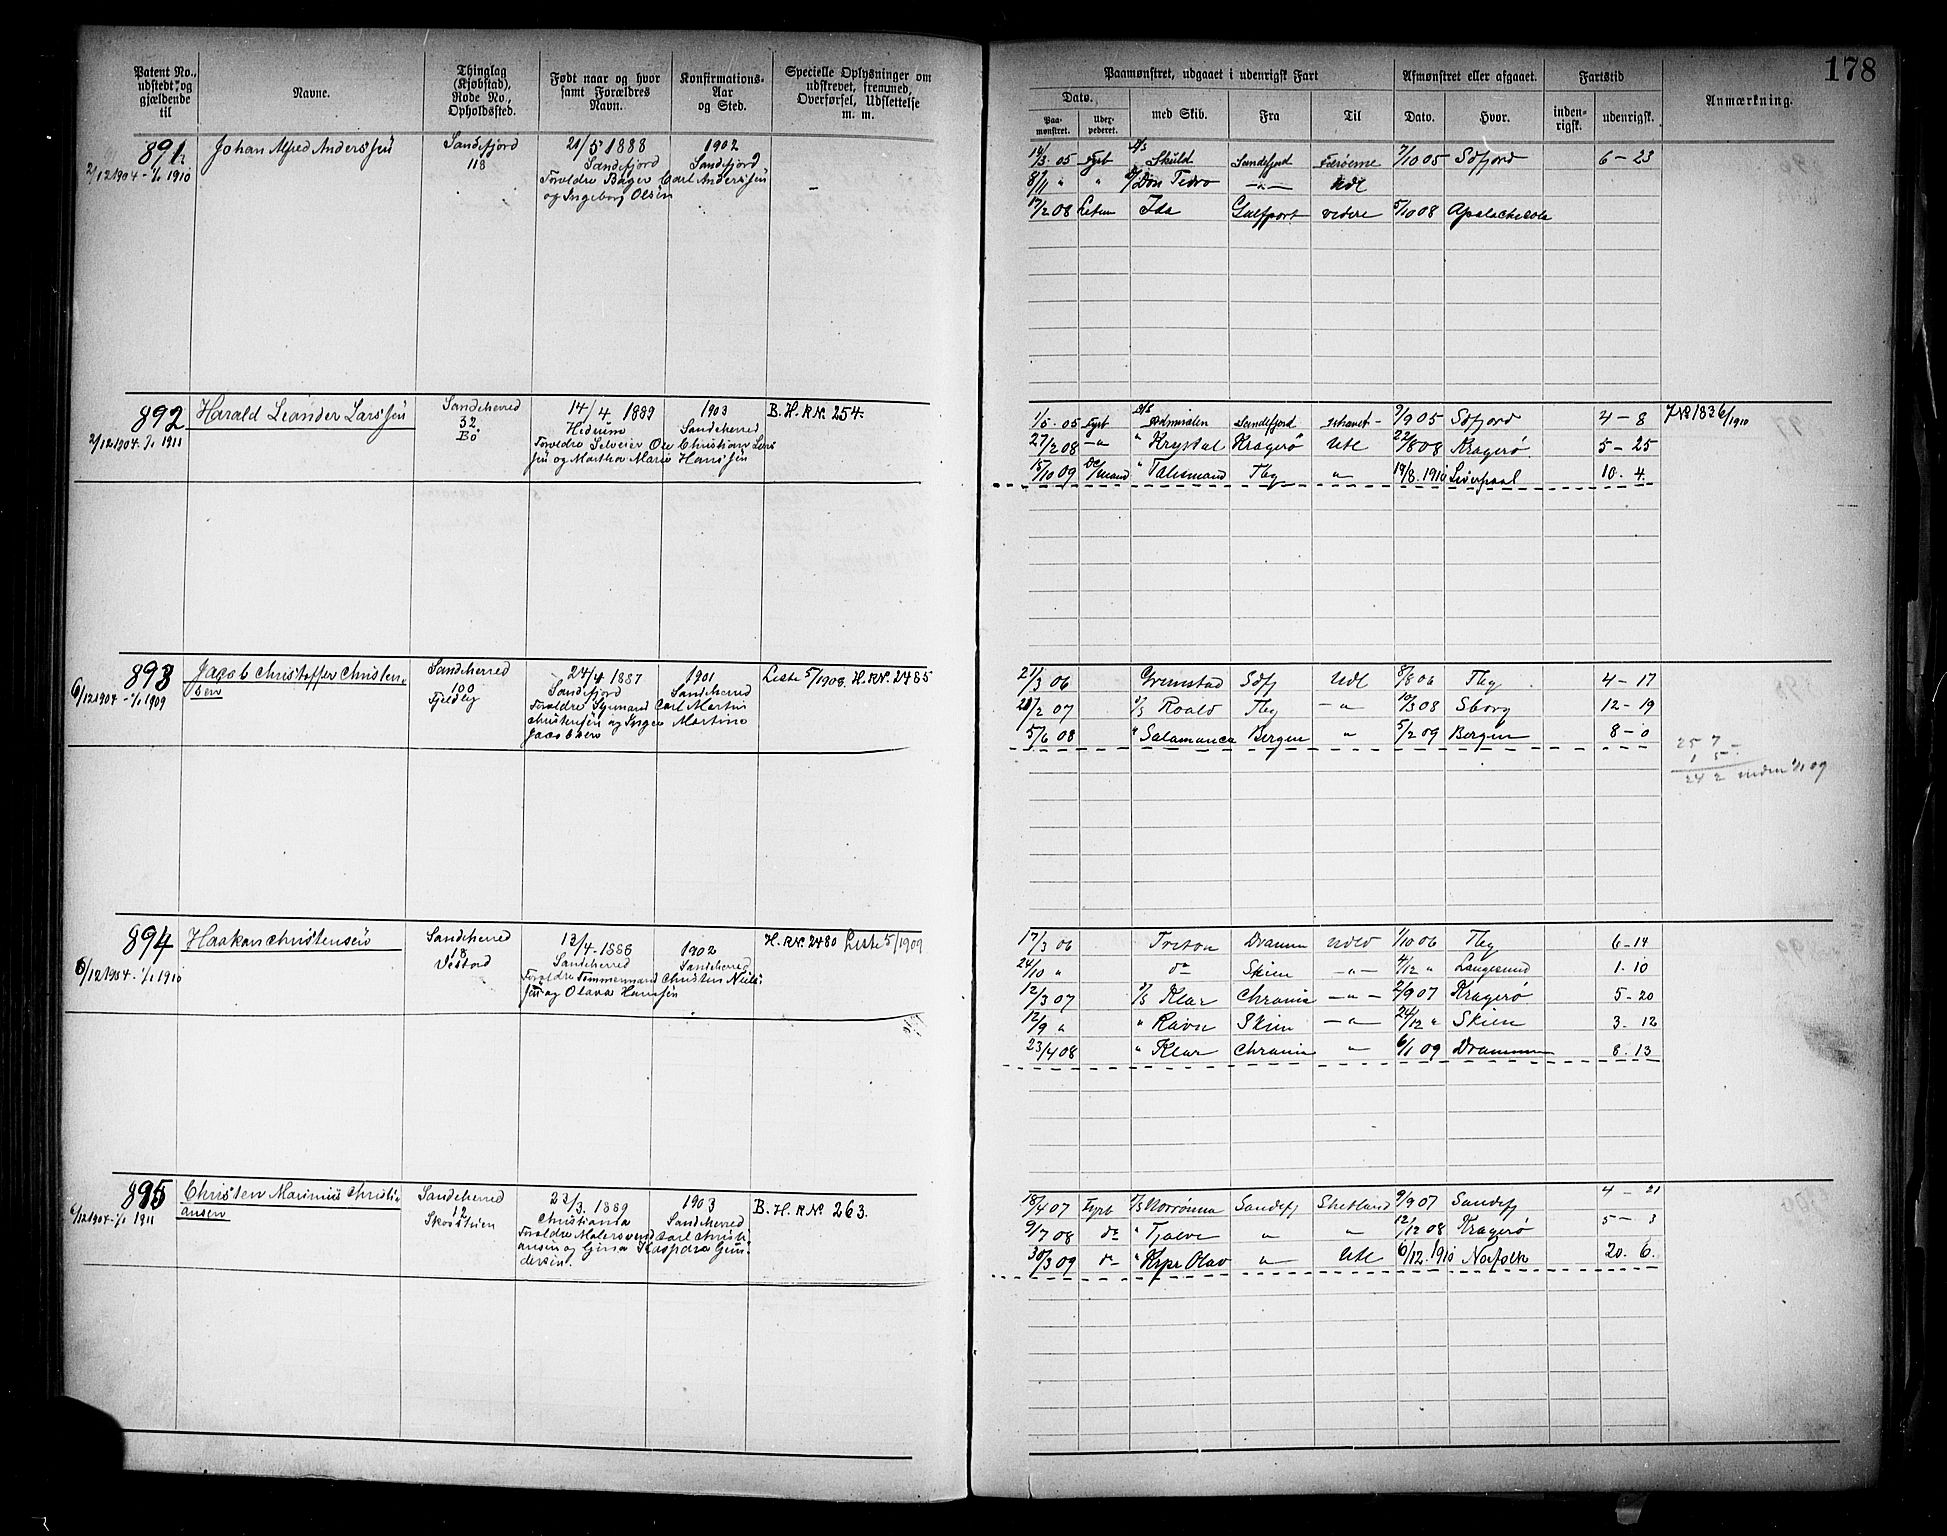 178
Patent No., udstedt og gjældende til
Navne.
Thinglag (Kjøbstad), Rode No., Opholdssted.
Født naar og hvor samt Forældres Navn.
Konfirmations- Aar og Sted.
Specielle Oplysninger om udskrevet, fremmed, Overførsel, Udslettelse m. m.
Paamønstret, udgaaet i udenrigsk Fart
Afmønstret eller afgaaet.
Fartstid
Anmærkning.
Dato.
Paa- mønstret.
med Skib.
Fra
Til
Dato.
Hvor.
inden- rigsk.
udenrigsk.
891
2/12 1904 - 1/1 1910
Johan Alfred Anderssen
Sandefjord
118
21/5 1888
Sandefjord
Forældre Bager Carl Anderssen
og Ingeborg Olsen
1902
Sandefjord
14/3 05 Fyrb Skuld Sandefjord Færøerne 7/10 05 Søfjord 6 - 23
8/11 " " Don Pedro -"- Udl
17/2 08 Ida Gulfport videre 5/10 08 Apalachicola
892
2/12 1904 - 1/1 1911
Harald Leander Larssen
Sandeherred
32
Bø
14/4 1889
Hedrum
Forældre Selveier Ole Christian Lars
sen og Martha Marie Hanssen
1903
Sandeherred
B. H. R No. 254.
1/5 05 Fyrb Admiralen Sandefjord 9/9 05 Søfjord 4 - 8
27/2 08 -"- " Krystal Kragerø Utl 22/8 08 Kragerø 5 - 25
15/10 09 " Talesmand Tbg " 19/8. 1910 Liverpool 10 . 4.
893
6/12 1904 - 1/1 1909
Jacob Christoffer Christen-
sen
Sandeherred
100
Fjeldby
24/4 1887
Sandefjord
Forældre Sømand Carl Martin
Christensen og Inger Martine
Jacobsen
1901
Sandeherred
Liste 5/1908. H. R No. 2485
21/3 06 Grimstad Søfj Udl 8/8 06 Tbg 4 - 17
21/2 07 Roald Tbg -"- 10/3 08 Sborg 12 - 19
5/6 08 " Salamanca Bergen " 5/2 09 Bergen 8 - 0
25 7
1 5
24 2 inden 1/1 09
894
6/12 1904 - 1/1 1910
Haakon Christensen
Sandeherred
18
Vestad
12/4 - 1888
Sandeherred
Forældre Tømmermand Christen Niels
sen og Olava Hanssen
1902
Sandeherred
H. R No. 2480 Liste 5/1909
17/3 06 Triton Drammen Udld 1/10 06 Tbg 6 - 14
24/10 " do Skien -"- 4/12 " Langesund 1 . 10
12/3 07 Klar Chrania -"- 2/9 07 Kragerø 5 - 20
12/9 " " Ravn Skien -"- 24/12 " Skien 3 . 12
23/4 08 " Klar Chrania " 6/1 09 Drammen 8 . 13
895
6/12 1904 - 1/1 1911
Christen Marinius Christi-
ansen
Sandeherred
12
23/3. 1889
Christiania
Forældre Malersvend Carl Christi-
ansen og Gina Kaspara Gun-
dersen.
1903
Sandeherred
B. H. R No. 263.
18/4 07 Fyrb Norrønna Sandefj Shetland 9/9 07 Sandefj 4 - 21
9/7 08 do " Tjalve " " 12/12 08 Kragerø 5 - 3
30/3 09 do " Krpr Olav " Utl 6/12. 1910 Norfolk 20 . 6.